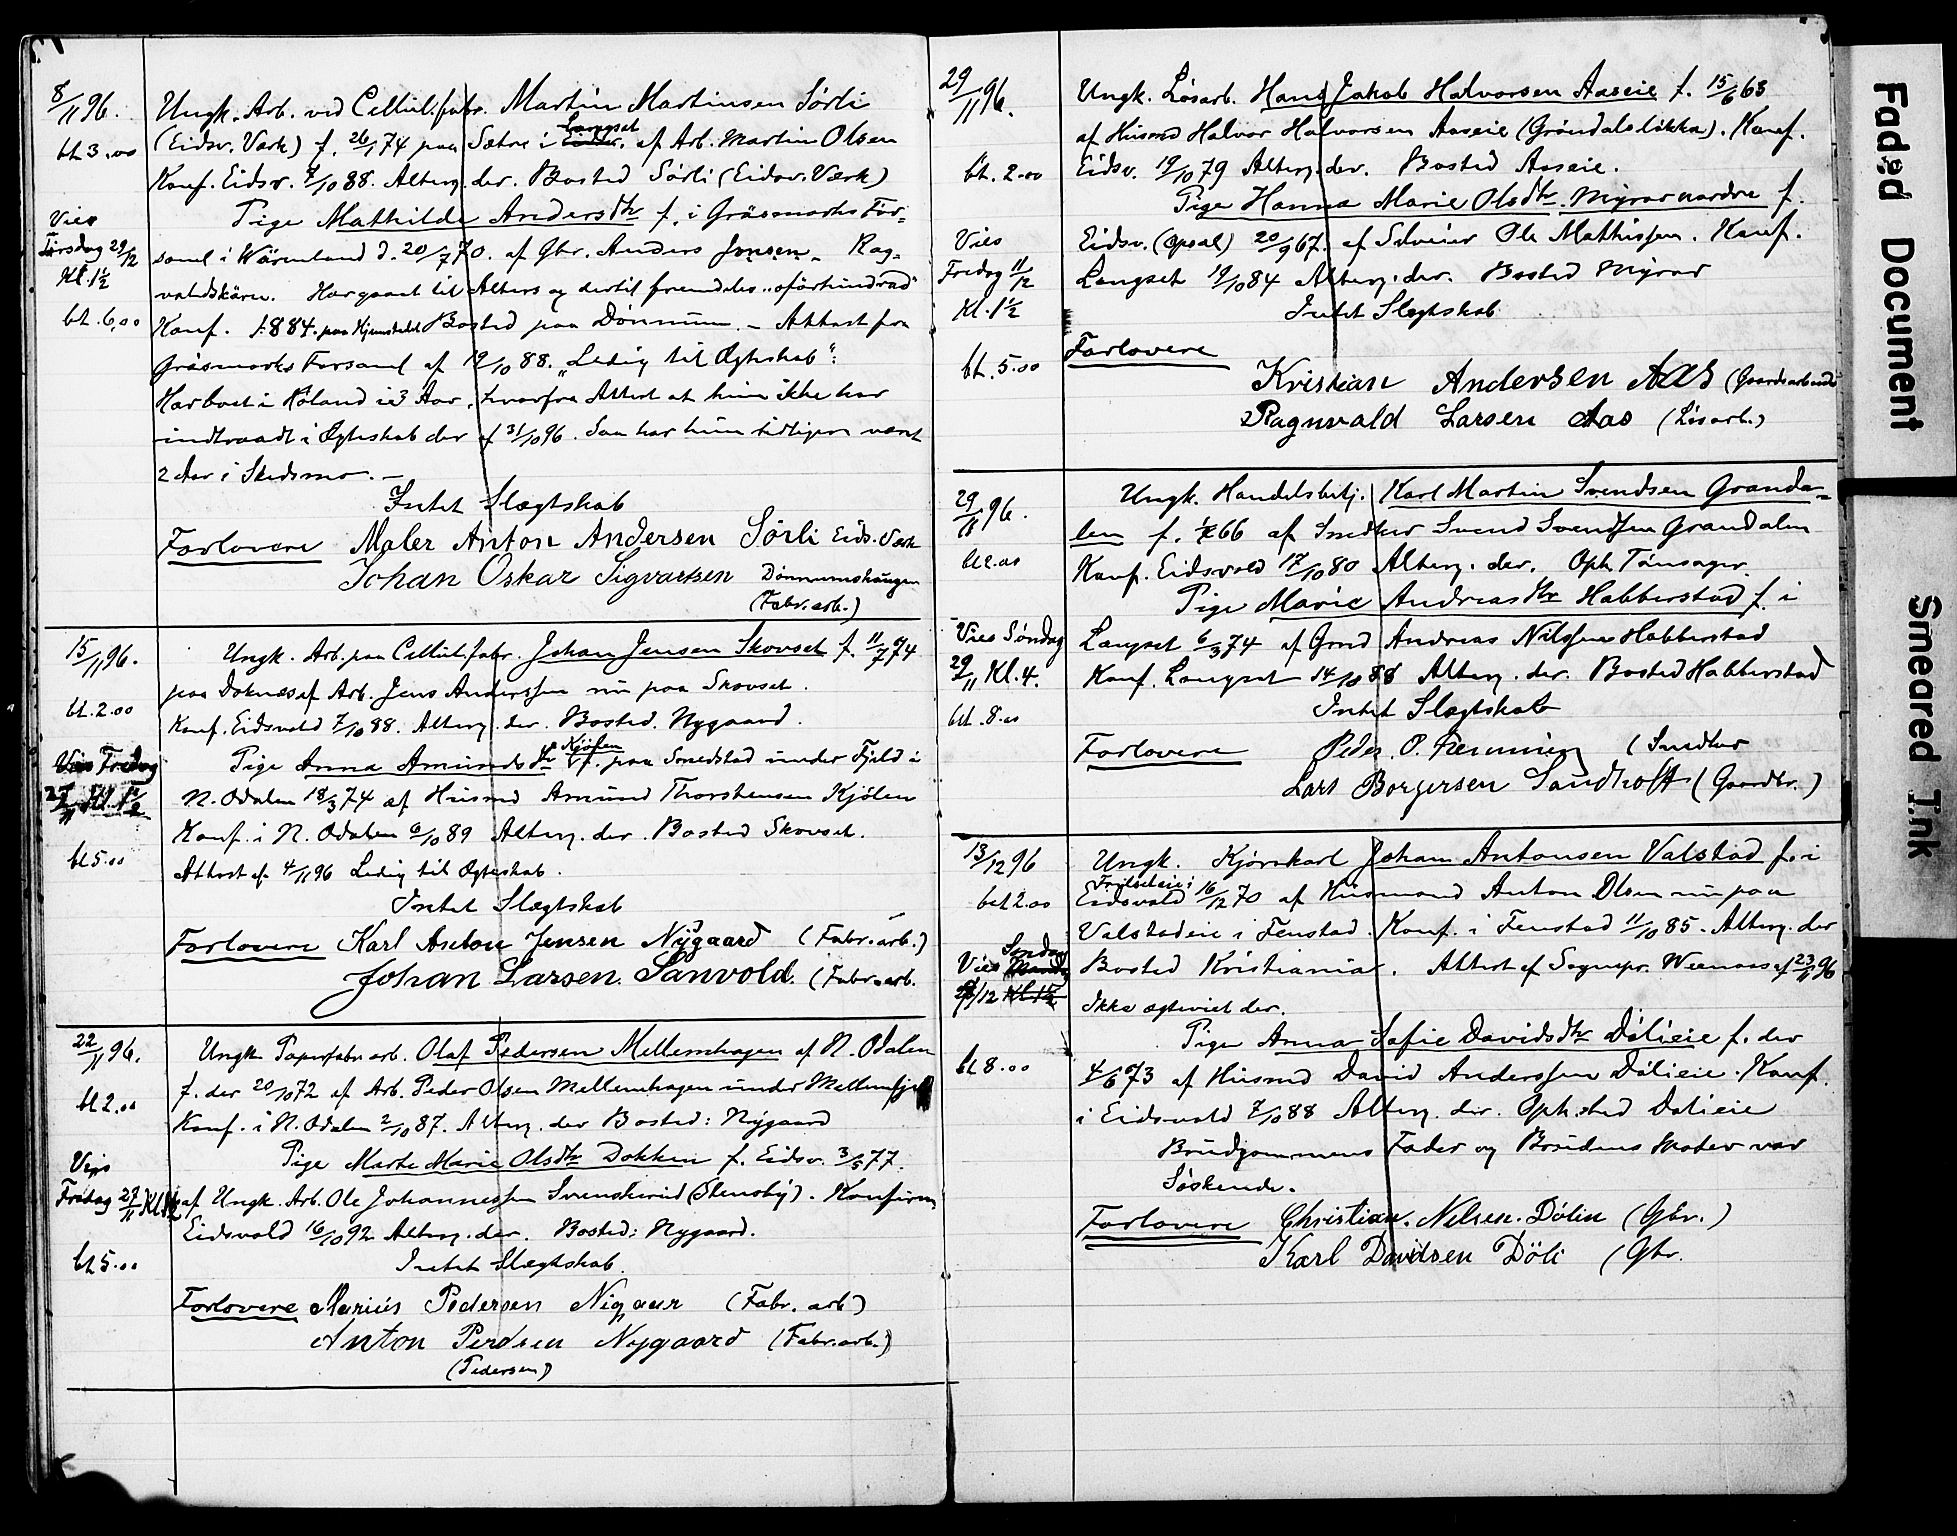 8/11 96. Ungk. Arb. ved Cellul.fabr. Martin Martinsen Sörli
bt 3.00 (Eidsv. Værk) f. 26/1 74 paa Sætre i Langset af Arb. Martin Olsen
Konf. Eidsv. 7/10 88. Alterg. der. Bosted Sörli (Eidsv. Værk)
Vies Pige Mathilde Andersdtr f. i Gräsmarks För-
Tirsdag 29/12 saml i Wärmland d. 20/7 70. af Gbr. Anders Jonsen. Rag-
Kl. 1½ valdskärn. Har gaaet til Alters og dertil fremdeles "oförhindrad"
bt. 6,00 Konf. 1884. paa Hjemstedet Bosted paa Dönnum. - Attest fra
Gräsmarks Forsaml af 19/10 88. "Ledig til Ægteskab":
Har boet i Höland i 3 Aar, hvorfra Attest at hun ikke har
indtraadt i Ægteskab der af 31/10 96. Saa har hun tidligere været
2 Aar i Skedsmo. -
Intet Slægtskab
Forlovere Maler Anton Andersen Sörli Eids. Værk
Johan Oskar Sigvartsen Dönnumshaugen
(Fabr. arb.)
15/11 96. Ungk. Arb. paa Cellul.fabr. Johan Jensen Skovset f. 11/7 74
paa Doknes af Arb. Jens Anderssen nu paa Skovset.
bt. 2.00 Konf. Eidsvold 7/10 88. Alterg. der. Bosted. Nygaard.
Vies Fredag Pige Anna Amundsdtr Kjölen f. paa Smedstad under Fjeld i
27/11 Kl. 1½ N. Odalen 18/3 74 af Husmd Amund Thorstensen Kjölen
Konf. i N. Odalen 6/10 89 Alterg. der. Bosted Skovset.
bt 5.00 Attest af 4/11 96 Ledig til Ægteskab.
Intet Slægtskab
Forlovere Karl Anton Jensen Nygaard (Fabr. arb.)
Johan Larsen Sanvold. (Fabr. arb.
22/11 96. Ungk. Papirfabr arb. Olaf Pedersen Mellemhagen af N. Odalen
f. der 20/10 72 af Arb. Peder Olsen Mellemhagen under Mellemfjeld
bt 2.00 Konf. i N. Odalen 2/10 87. Alterg. der Bosted: Nygaard
Vies Pige Marte Marie Olsdtr Dokken f. Eidsv. 3/5 77.
Fredag 27/11 Kl 1½ af Ungk. Arb. Ole Johannessen Svenskerud (Stensby). Konfirm
Eidsvold 16/10 92 Alterg. der. Bosted: Nygaard.
bt 5.00 Intet Slægtskab.
Forlovere Marius Pedersen Nigaur (Fabr. arb)
Anton Perdsen Nygaard (Fabr. arb.)
(Pedersen)
29/11 96. Ungk. Lösarb. Hans Jakob Halvorsen Aaseie f. 15/6 63
af Husmd Halvor Halvorsen Aaseie (Gröndalslökka). Konf.
bt. 2.00 Eidsv. 19/10 79 Alterg. der. Bosted Aaseie.
Pige Hanna Marie Olsdtr. Myrar nordre f.
Vies Eidsv. (Opsal) 20/9 67. af Selveier Ole Mathissen. Konf.
Fredag 11/12 Langset 19/10 84 Alterg. der. Bosted Myrar
Kl. 1½ Intet Slægtskab
bt. 5.00 Forlovere
Kristian Andersen Aas (Gaardsarbeider
Ragnvald Larsen Aas (Lösarb.)
29/11 96. Ungk. Handelsbetj. Karl Martin Svendsen Granda-
len f. 66 af Snedker Svend Svendsen Grandalen
bt 2.00 Konf. Eidsvold 17/10 80 Alterg. der. Oph. Tönsager.
Pige Marie Andreasdtr Habberstad f. i
Vies Söndag Langset 6/3 74 af Grmd Andreas Nilssen Habberstad
29/11 Kl. 4. Konf. Langset 14/10 88 Alterg. der. Bosted Habberstad
bt. 8.00 Intet Slægtskab
Forlovere Peder P. (Snedker
Lars Borgersen Sandholt (Gaardbr.)
13/12 96 Ungk. Kjörekarl Johan Antonsen Valstad f. i
bet 2.00 Eidsvold 16/12 70 af Husmand Anton Olsen nu paa
Valstadeie i Fenstad. Konf. i Fenstad 11/10 85. Alterg. der
Vies Söndag Bosted Kristiania. Attest af Sognepr. af 23/11 96
/12 Kl. 1½ Ikke ægteviet der.
Pige Anna Sofie Davidsdtr Dölieie f. der
bt 8.00 4/6 73 af Husmd David Anderssen Dölieie. Konf.
i Eidsvold 7/10 88 Alterg. der. Oph.sted Dölieie
Brudgommens Fader og Brudens Moder var
Söskende.
Forlovere Christian. Nelsen. Dölin (Gbr.)
Karl Davidsen Döli (Gbr.
Faded Document
Smeared Ink